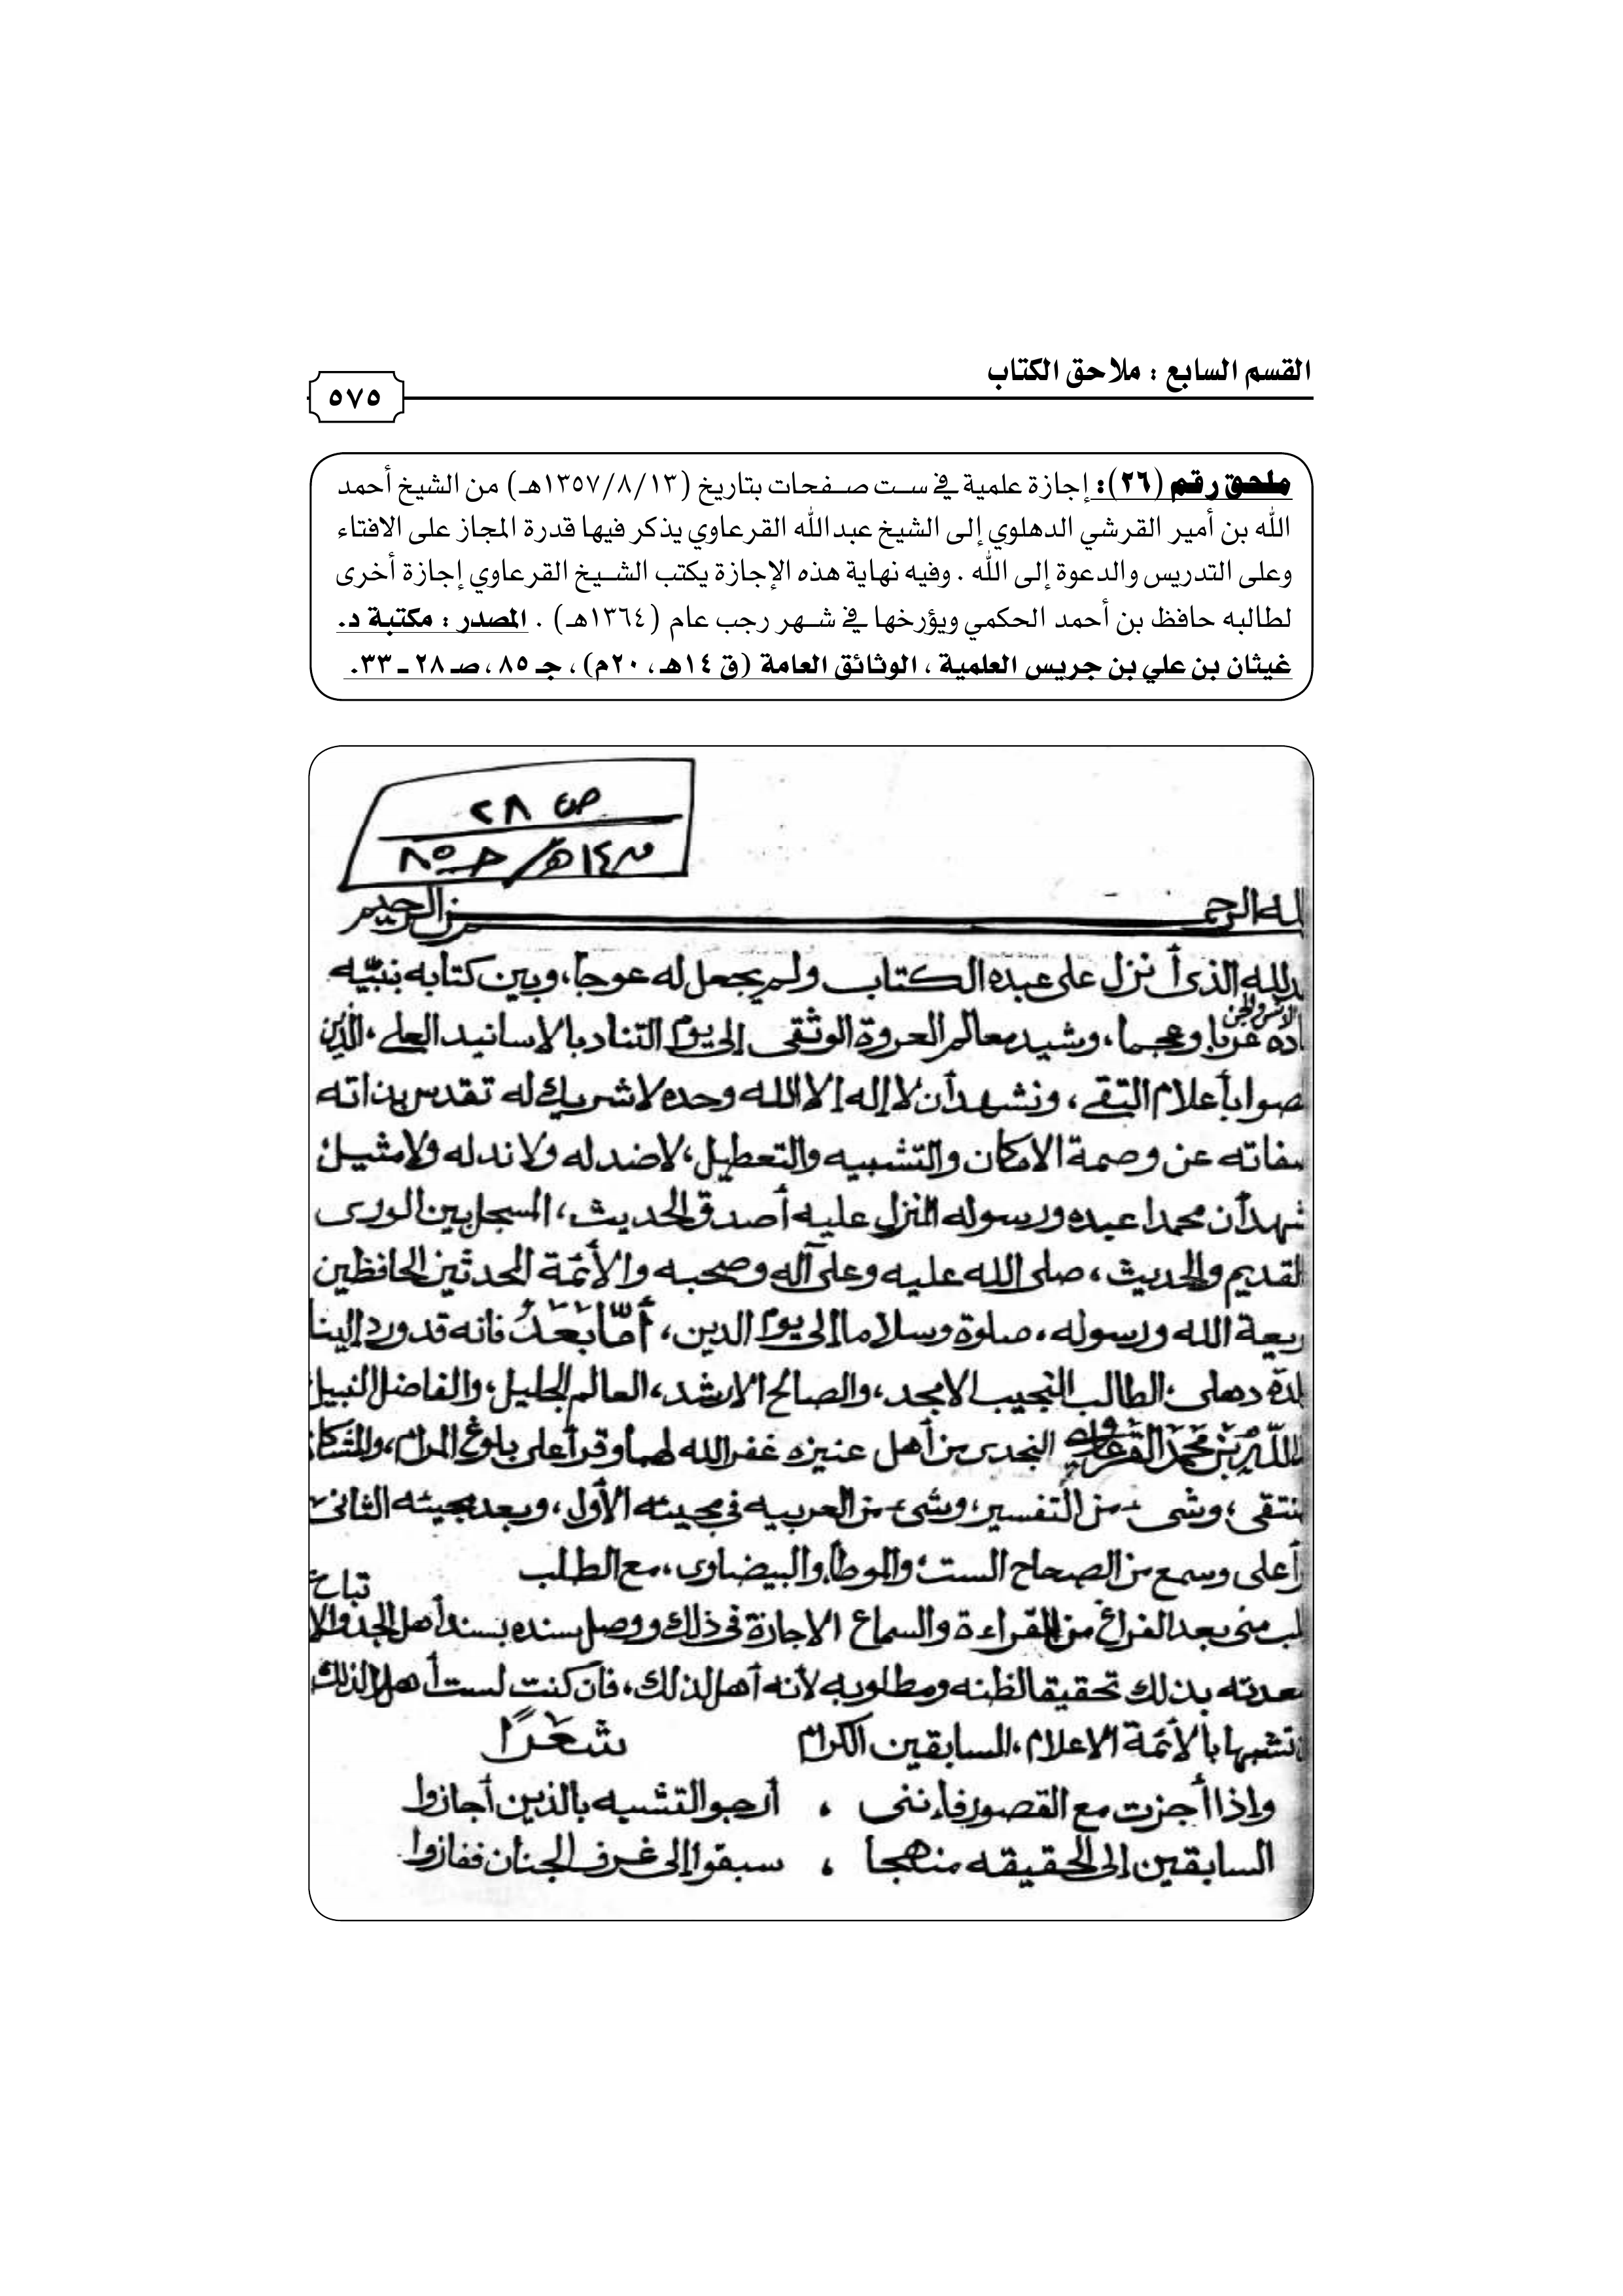 القسم السابع : ملاحق الكتاب
٥٧٥
ملحق رقم (٢٦): إجازة علمية في ست صفحات بتاريخ (١٣/٨/١٣٥٧هـ) من الشيخ أحمد
الله بن أمير القرشي الدهلوي إلى الشيخ عبدالله القرعاوي يذكر فيها قدرة المجاز على الافتاء
وعلى التدريس والدعوة إلى الله . وفيه نهاية هذه الإجازة يكتب الشيخ القرعاوي إجازة أخرى
لطالبه حافظ بن أحمد الحكمي ويؤرخها في شهر رجب عام (١٣٦٤هـ) . المصدر : مكتبة د.
غيثان بن علي بن جريس العلمية ، الوثائق العامة (ق ١٤هـ ، ٢٠م) ، جـ ٨٥ ، صـ ٢٨ ـ ٣٣.
ص ٢٨
ق ١٤هـ / جـ ٨٥
لله الرحمن الرحيم
لله الذى أنزل على عبده الكتاب ولم يجعل له عوجا، وبين كتابه بنبيه
الانس والجن
عربا وعجما، وشيد معالم العروة الوثقى إلى يوم التناد بالاسانيد العلى، الذين
بأعلام التقى، ونشهد أن لا إله إلا الله وحده لا شريك له تقدس بذاته
عن وصمة الامكان والتشبيه والتعطيل، لا ضد له ولا ند له ولا مثيل
أن محمدا عبده ورسوله المنزل عليه أصدق الحديث، المسجل بين الورى
القديم والحديث، صلى الله عليه وعلى آله وصحبه والأئمة المحدثين الحافظين
الله ورسوله، صلوة وسلاما إلى يوم الدين، أمّا بَعْدُ فانه قد ورد إلينا
دهلى، الطالب النجيب الامجد، والصالح الارشد، العالم الجليل، والفاضل النبيل
الله بن محمد القرعاوي النجدى من أهل عنيزه غفر الله لهما وقرأ على بلوغ المرام، والمشكاة
وشىء من التفسير، وشىء من العربيه فى مجيئه الأول، وبعد مجيئه الثانى
على وسمع من الصحاح الست، والموطأ والبيضاوى، مع الطلب
منى بعد الفراغ من القراءة والسماع الاجازة فى ذلك ووصل سنده بسند أهل الجد والا
تباع
بذلك تحقيقا لظنه ومطلوبه لأنه أهل لذلك، فان كنت لست أهلا لذلك
تشبها بالأئمة الاعلام، السابقين الكرام شعرًا
وإذا أجزت مع القصور فإننى ، أرجو التشبه بالذين أجازوا
السابقين إلى الحقيقه منهجا ، سبقوا إلى غرف الجنان ففازوا